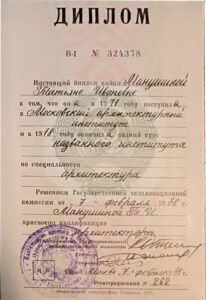 ДИПЛОМ
В-I № 324378
Настоящий диплом выдан Манушиной
Татьяне Ивановне
в том, что она в 1971 году поступила
в Московский архитектурный
институт
и в 1978 году окончила полный курс
названного института
по специальности
архитектура
Решением Государственной экзаменационной
комиссии от 7 февраля 1978 г.
Манушиной Т. И.
присвоена квалификация
архитектора
7 февраля 1978 г.
Регистрационный № 262
Московская типография Гознака.